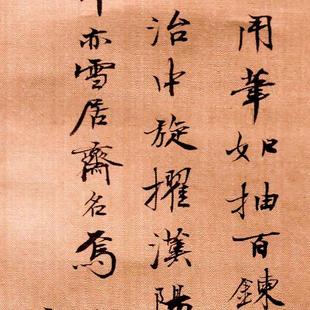 用笔如抽百鍊
治中旋擢漢陽
亦雪居齋名焉